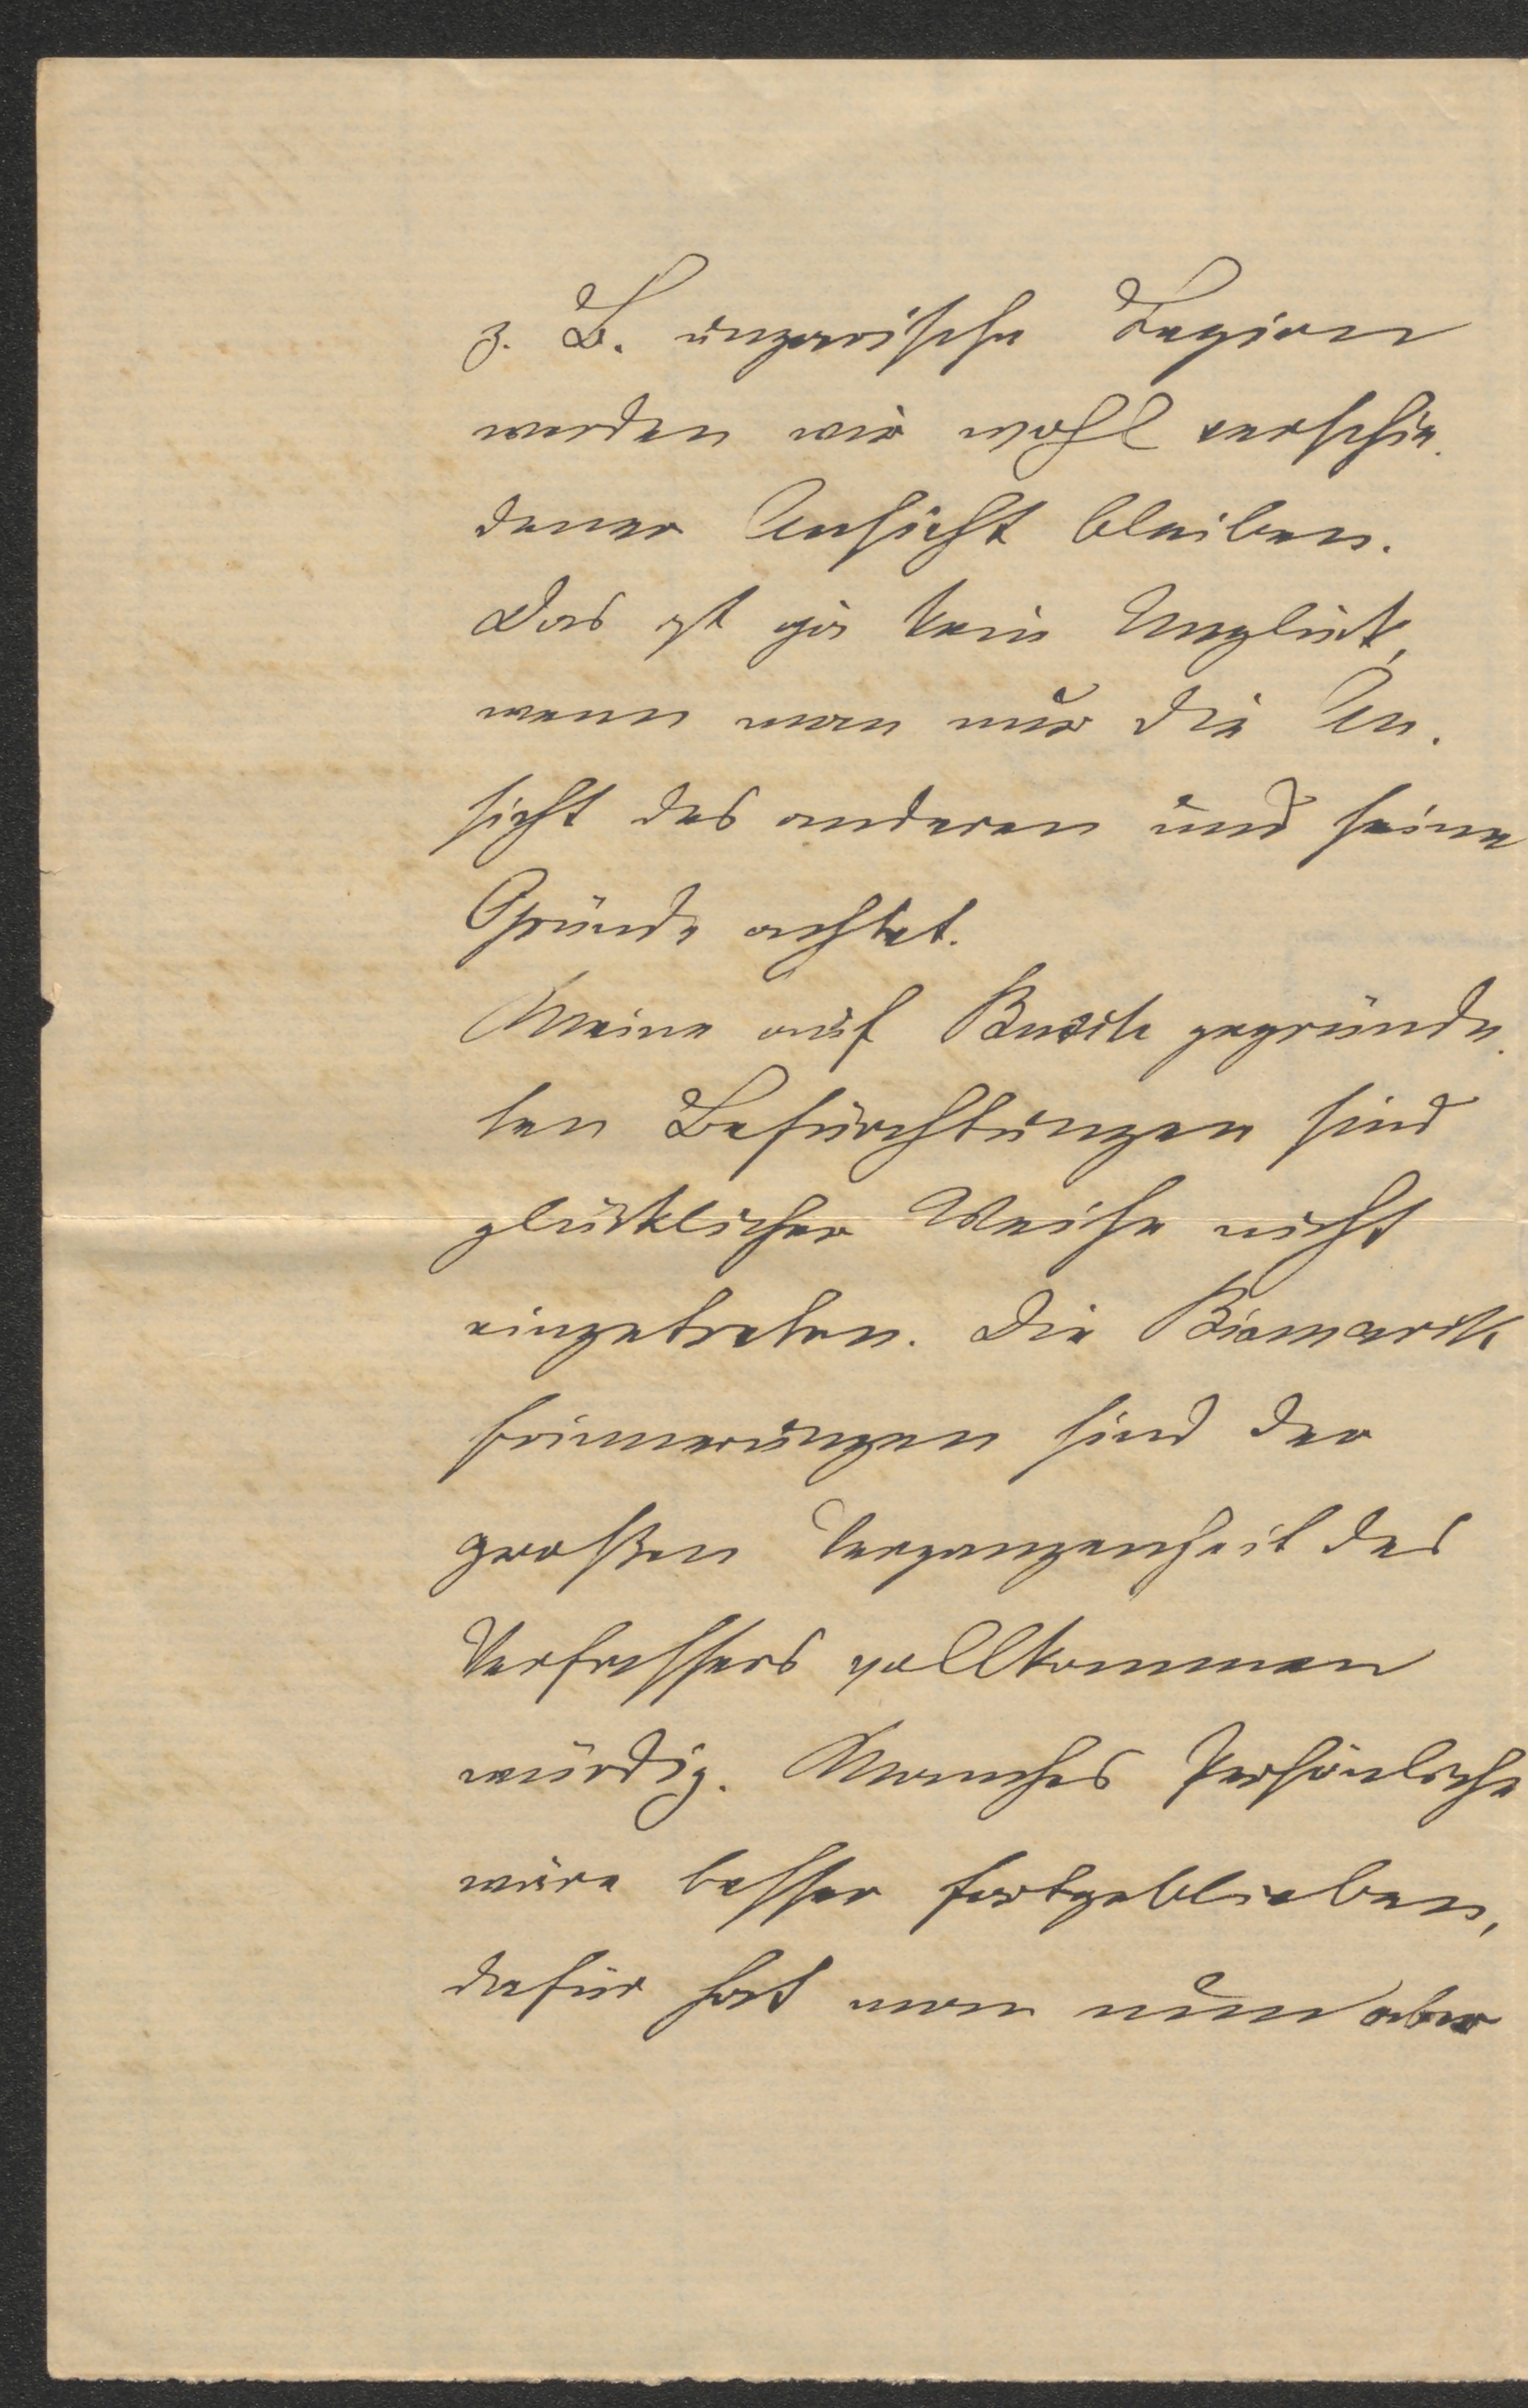 z. B. ungarische Legion
werden wir wohl verschie-
dener Ansicht bleiben.
Das ist ja kein Unglück,
wenn man nur die An-
sicht des anderen und seine
Gründe achtet.
Meine auf Busch gegründe-
ten Befürchtungen sind
glücklicher Weise nicht
eingetreten. Die Bismarck
Erinnerungen sind der
großen Vergangenheit des
Verfassers vollkommen
würdig. Manches Persönliche
wäre besser fortgeblieben,
dafür hat man nun aber